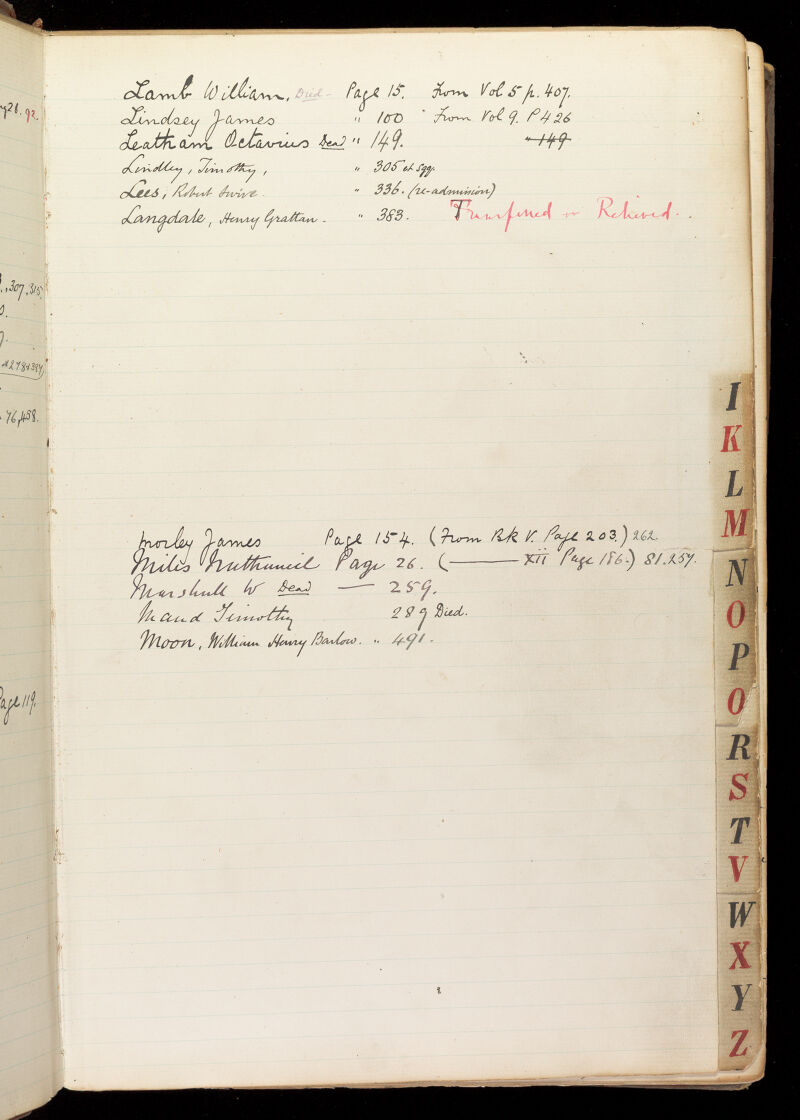 Lamb William, Died - Page 15. From Vol 5 p. 407.
Lindsey James " 100 " From Vol 9. P 426
Leatham Octavius Dead " 149. " 149
Lindley, Timothy, " 305 et sqq.
Lees, Robert " 336. (re-admission)
Langdale, Henry Grattan. " 383. Transferred or Relieved.
Morley James Page 154. (From Bk V. Page 203.) 262.
Milis Nathaniel Page 26. (—— XII Page 186.) 81.257.
Marshall W Dead — 259.
Maud Timothy 289 Died.
Moon, William Henry Barlow. " 491.
92.
307, 315
76,458.
Page 119.
I
K
L
M
N
O
P
Q
R
S
T
V
W
X
Y
Z